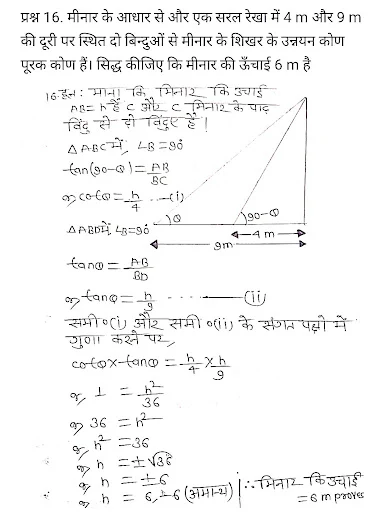 प्रश्न 16. मीनार के आधार से और एक सरल रेखा में 4 m और 9 m
की दूरी पर स्थित दो बिन्दुओं से मीनार के शिखर के उन्नयन कोण
पूरक कोण हैं। सिद्ध कीजिए कि मीनार की ऊँचाई 6 m है
16. हल: माना कि मिनार कि उचाई
AB = h है C और C मिनार के पाद
बिंदु से दो बिंदुए है।
△ABC में, ∠B = 90°
tan(90-θ) = AB/BC
=> cotθ = h/4 ---(i)
θ
90-θ
4 m
9m
△ABD में ∠B = 90°
tanθ = AB/BD
=> tanθ = h/9 ------(ii)
समी०(i) और समी०(ii) के संगत पक्षो में
गुणा करने पर,
cotθ × tanθ = h/4 × h/9
=> 1 = h²/36
=> 36 = h²
=> h² = 36
=> h = ±√36
=> h = ±6
=> h = 6, -6 (अमान्य)
∴ मिनार कि उचाई
= 6 m proves